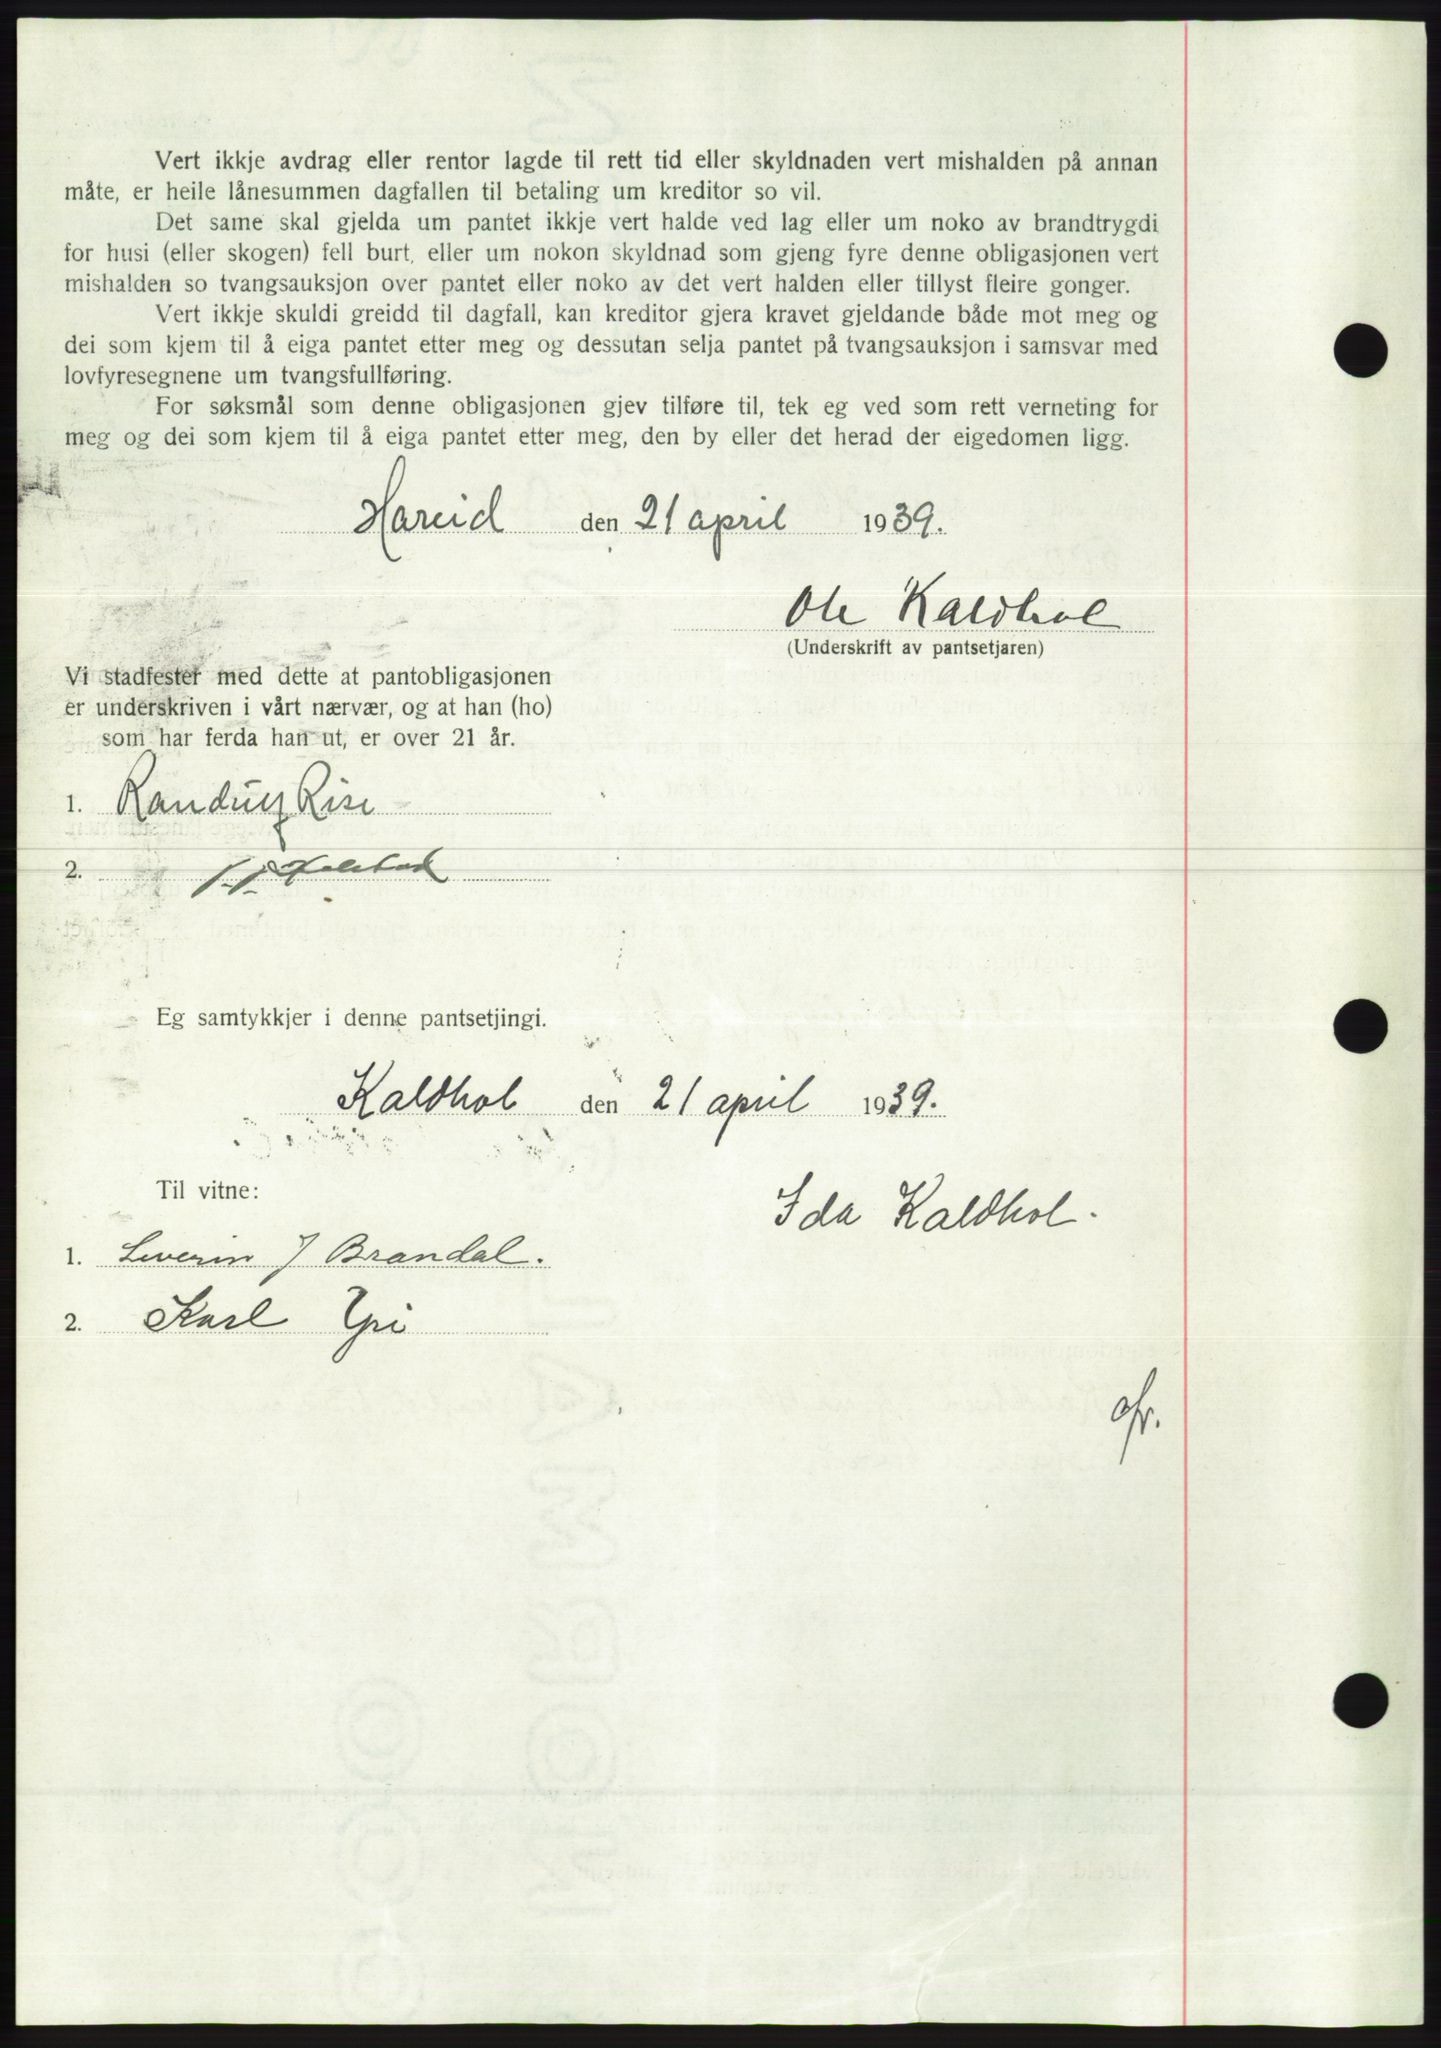 Vert ikkje avdrag eller rentor lagde til rett tid eller skyldnaden vert mishalden på annan
måte, er heile lånesummen dagfallen til betaling um kreditor so vil.
Det same skal gjelda um pantet ikkje vert halde ved lag eller um noko av brandtrygdi
for husi (eller skogen) fell burt, eller um nokon skyldnad som gjeng fyre denne obligasjonen vert
mishalden so tvangsauksjon over pantet eller noko av det vert halden eller tillyst fleire gonger.
Vert ikkje skuldi greidd til dagfall, kan kreditor gjera kravet gjeldande både mot meg og
dei som kjem til å eiga pantet etter meg og dessutan selja pantet på tvangsauksjon i samsvar med
lovfyresegnene um tvangsfullføring.
For søksmål som denne obligasjonen gjev tilføre til, tek eg ved som rett verneting for
meg og dei som kjem til å eiga pantet etter meg, den by eller det herad der eigedomen ligg.
Hareid den 21 april 1939.
Ole Kaldhol
(Underskrift av pantsetjaren)
Vi stadfester med dette at pantobligasjonen
er underskriven i vårt nærvær, og at han (ho)
som har ferda han ut, er over 21 år.
1. Randuy Rise
2.
Eg samtykkjer i denne pantsetjingi.
Kaldhol den 21 april 1939.
Til vitne:
Ida Kaldhol.
1. Severin J Brandal.
2. Karl Yri